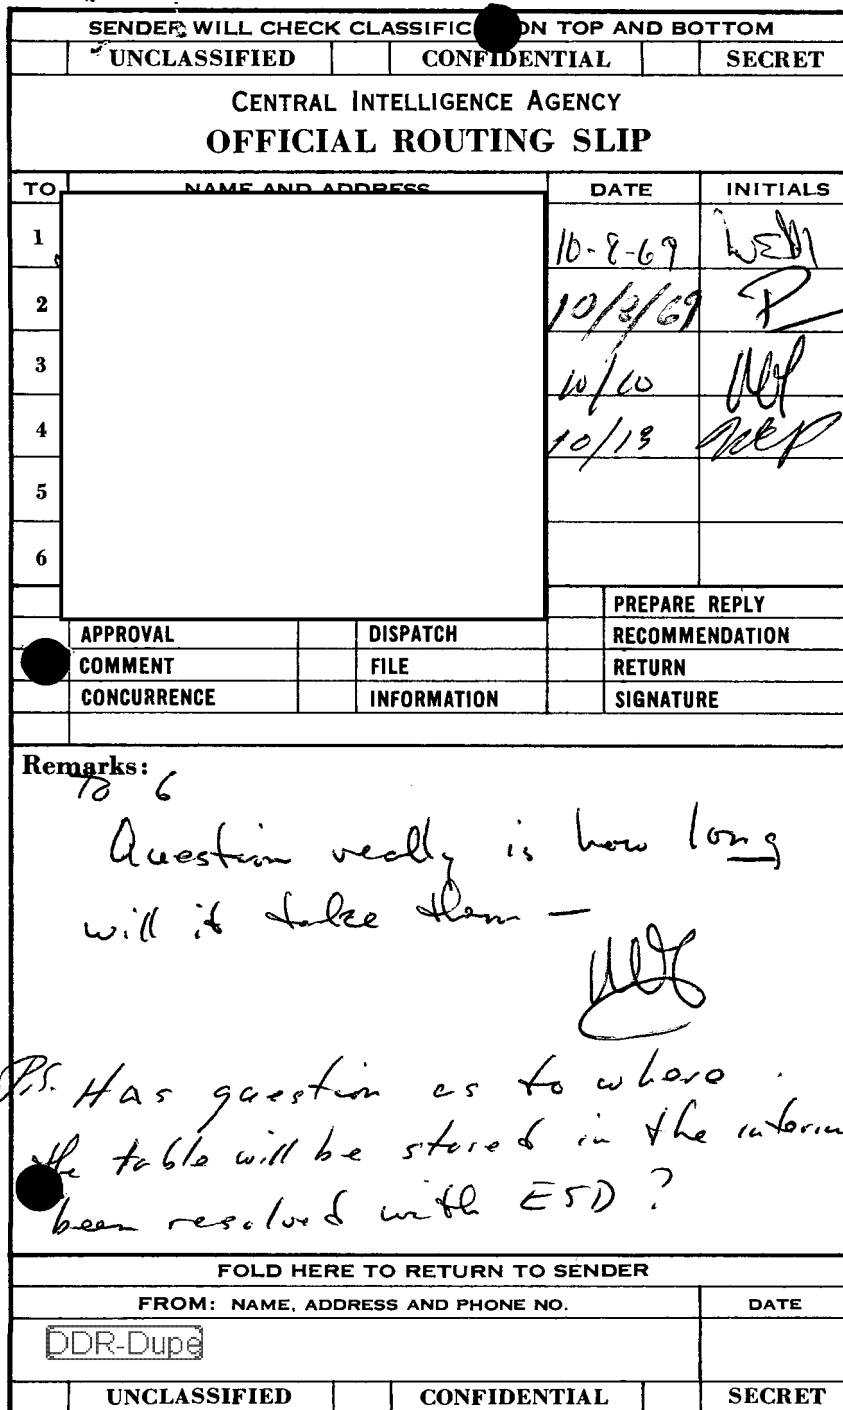 SENDER WILL CHECK CLASSIFIC ON TOP AND BOTTOM
UNCLASSIFIED CONFIDENTIAL SECRET
CENTRAL INTELLIGENCE AGENCY
OFFICIAL ROUTING SLIP
TO NAME AND ADDRESS DATE INITIALS
1 10-8-69
2 10/8/69
3 10/10
4 10/13
5
6
PREPARE REPLY
APPROVAL DISPATCH RECOMMENDATION
COMMENT FILE RETURN
CONCURRENCE INFORMATION SIGNATURE
Remarks:
To 6
Question really is how long
will it take them —
P.S. Has question as to where
the table will be stored in the interim
been resolved with ESD?
FOLD HERE TO RETURN TO SENDER
FROM: NAME, ADDRESS AND PHONE NO. DATE
DDR-Dupe
UNCLASSIFIED CONFIDENTIAL SECRET